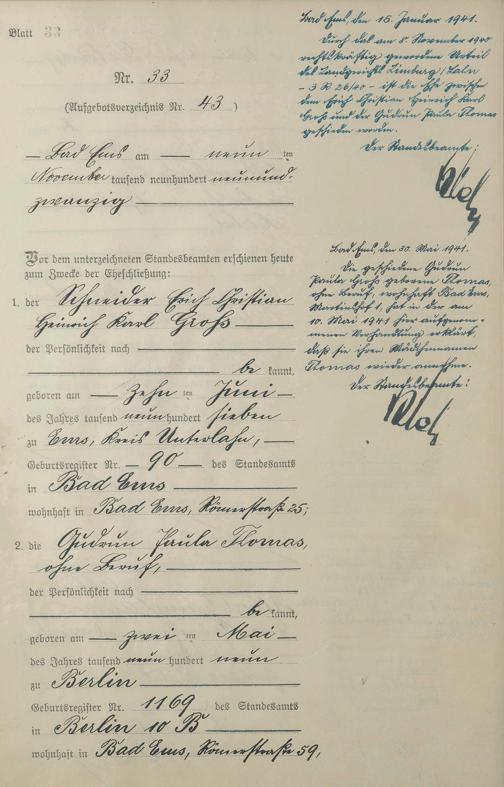 Blatt 33
Nr. 33
(Aufgebotsverzeichnis Nr. 43)
— Bad Ems am — neun ten
November tausend neunhundert neunund-
zwanzig —
Vor dem unterzeichneten Standesbeamten erschienen heute
zum Zwecke der Eheschließung:
1. der Schneider Erich Christian
Heinrich Karl Groß —
der Persönlichkeit nach —
— be kannt,
geboren am — zehn ten Juni —
des Jahres tausend neun hundert sieben
zu Ems, Kreis Unterlahn, —
Geburtsregister Nr. — 90 — des Standesamts
in Bad Ems —
wohnhaft in Bad Ems, Römerstraße 25;
2. die Gudrun Paula Thomas,
ohne Beruf, —
der Persönlichkeit nach —
— be kannt,
geboren am — zwei ten Mai —
des Jahres tausend neun hundert neun
zu Berlin —
Geburtsregister Nr. 1169 des Standesamts
in Berlin 10 B —
wohnhaft in Bad Ems, Römerstraße 59,
Bad Ems, den 15. Januar 1941.
Durch das am 8. November 1940
rechtskräftig gewordene Urteil
des Landgerichts Limburg/Lahn
– 3 R 26/40 – ist die Ehe zwischen
dem Erich Christian Heinrich Karl
Groß und der Gudrun Paula Thomas
geschieden worden.
Der Standesbeamte:
Bad Ems, den 30. Mai 1941.
Die geschiedene Gudrun
Paula Groß geborene Thomas,
ohne Beruf, wohnhaft Bad Ems,
hat in der am
10. Mai 1941 hier aufgenom-
menen Verhandlung erklärt,
daß sie ihren Mädchennamen
Thomas wieder annehme.
Der Standesbeamte: